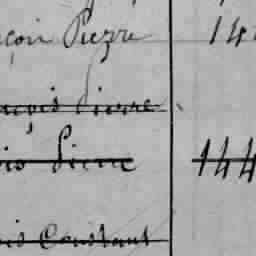 çois Pierre 14
nçois Pierre
ois Pierre 144
ois Constant